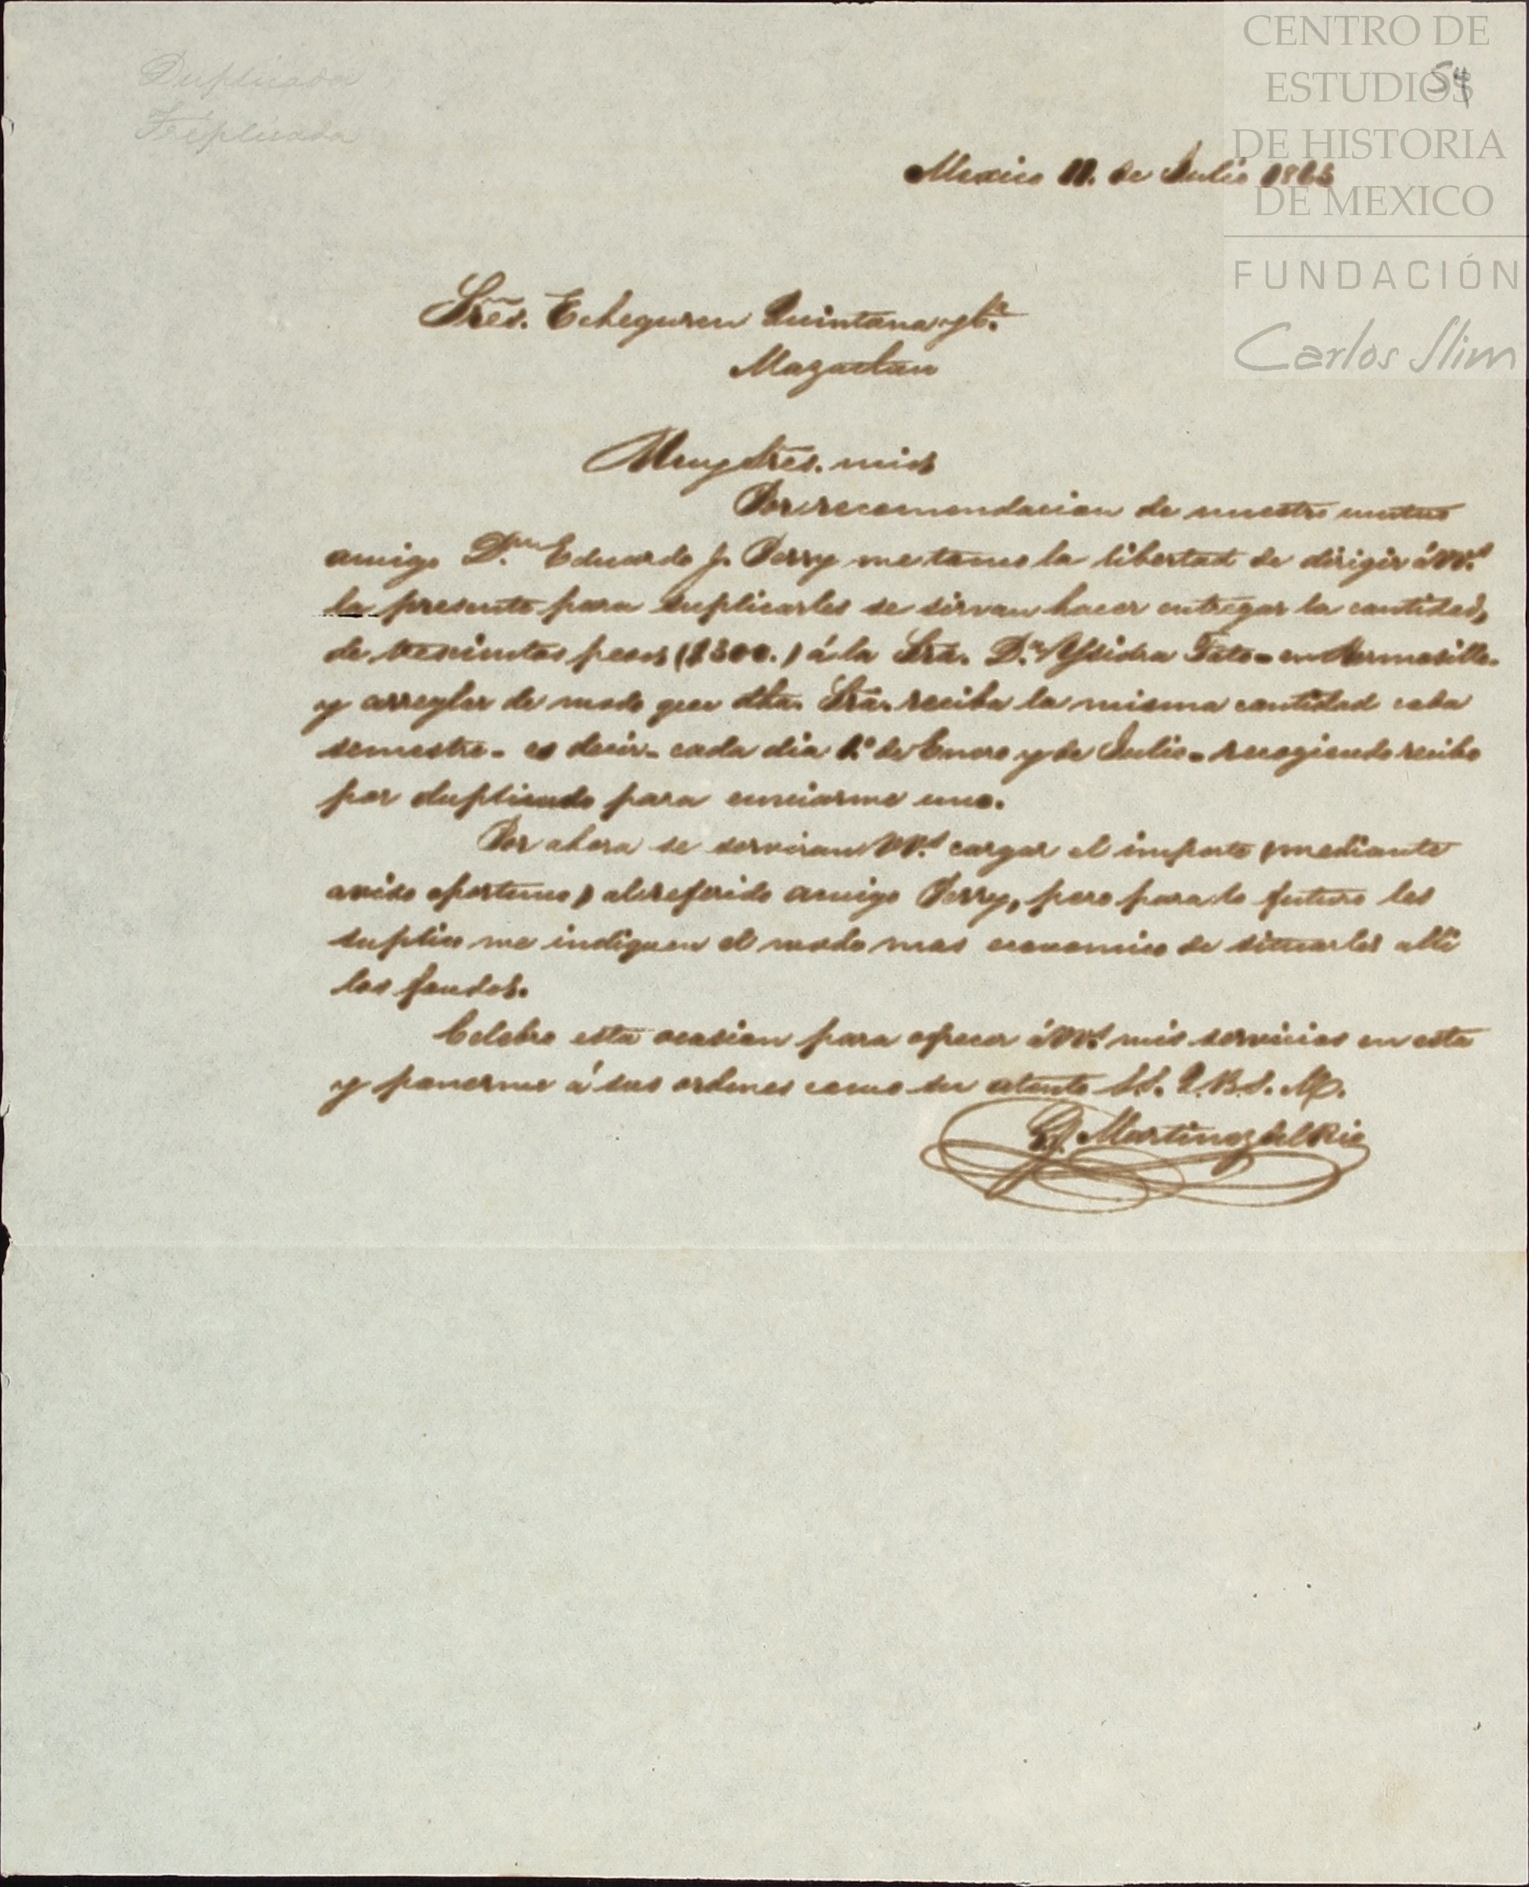 Duplicada
Triplicada
54
CENTRO DE
ESTUDIOS
DE HISTORIA
DE MEXICO
FUNDACIÓN
Carlos Slim
Mexico 11. de Julio 1865
Sres. Echeguren Quintana y Ca.
Mazatlan
Muy Sres. mios
Por recomendacion de nuestro mutuo
amigo Dn. Eduardo J. Perry me tomo la libertad de dirigir á VVs.
la presente para suplicarles se sirvan hacer entregar la cantidad,
de trescientos pesos ($300.) á la Sra. Da. Ysidra Tato - en Hermosillo.
y arreglar de modo que dha. Sra. reciba la misma cantidad cada
semestre - es decir - cada dia 1o. de Enero y de Julio - recogiendo recibo
por duplicado para enviarme uno.
Por ahora se serviran VVs. cargar el importe (mediante
aviso oportuno) al referido amigo Perry, pero para lo futuro les
suplico me indiquen el modo mas economico de situarles alli
los fondos.
Celebro esta ocasion para ofrecer á VVs. mis servicios en esta
y ponerme á sus ordenes como su atento S.S. Q.B.S.M.
Martinez del Rio